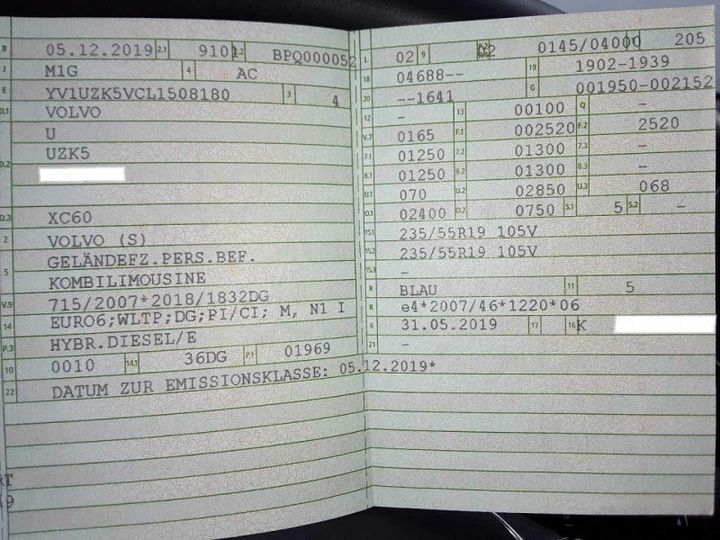 B 05.12.2019 2.1 9101 2.2 BPQ000052
J M1G 4 AC
E YV1UZK5VCL1508180 3 4
D.1 VOLVO
U
D.2 UZK5
D.3 XC60
2 VOLVO (S)
5 GELÄNDEFZ.PERS.BEF.
KOMBILIMOUSINE
V.9 715/2007*2018/1832DG
14 EURO6;WLTP;DG;PI/CI; M, N1 I
P.3 HYBR.DIESEL/E
10 0010 14.1 36DG P.1 01969
22 DATUM ZUR EMISSIONSKLASSE: 05.12.2019*
L 02 9 02 0145/04000 205
18 04688-- 19 1902-1939
20 --1641 G 001950-002152
12 - 13 00100 Q -
V.7 0165 F.1 002520 F.2 2520
7.1 01250 7.2 01300 7.3 -
8.1 01250 8.2 01300 8.3 -
U.1 070 U.2 02850 U.3 068
O.1 02400 O.2 0750 S.1 5 S.2 -
15.1 235/55R19 105V
15.2 235/55R19 105V
15.3 -
R BLAU 11 5
K e4*2007/46*1220*06
6 31.05.2019 17 16 K
21 -